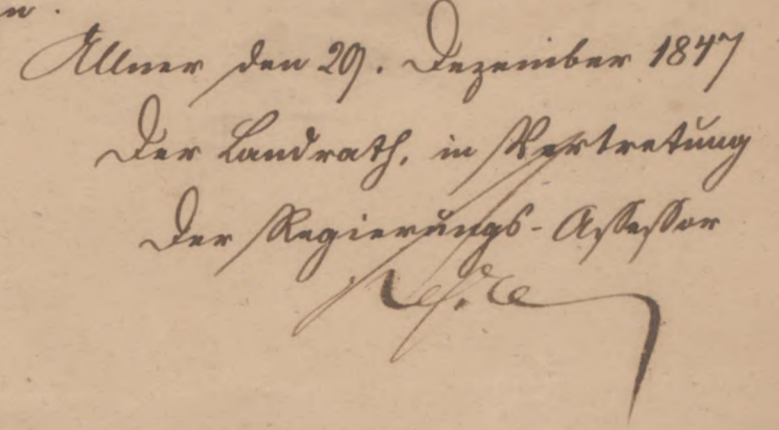 n.
Allner den 29. Dezember 1847
Der Landrath, in Vertretung
Der Regierungs-Assessor